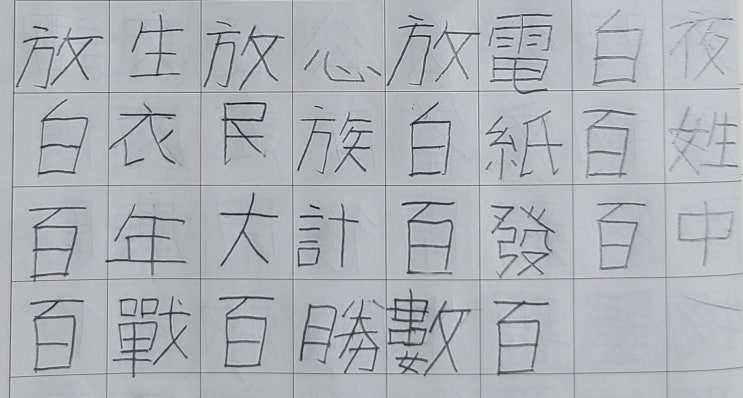 放生放心放電白夜
白衣民族白紙百姓
百年大計百發百中
百戰百勝數百